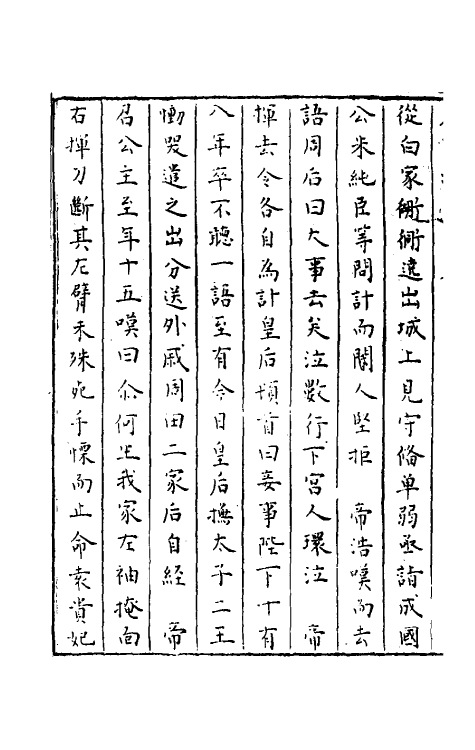 從白家衚衕遶出城上見守俻单弱亟詣成國
公朱純臣等問計而閽人堅拒　帝浩嘆而去
語周后曰大事去矣泣數行下宮人環泣　帝
揮去令各自為計皇后頓首曰妾事陛下十有
八年卒不聽一語至有今日皇后撫太子二王
慟哭遣之出分送外戚周田二家后自經　帝
召公主至年十五嘆曰尒何生我家左袖掩面
右揮刀斷其左臂未殊死手慄而止命袁貴妃